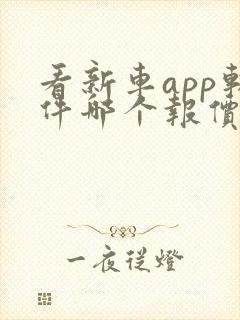 看新車app軟
件哪个報價
一夜從燈